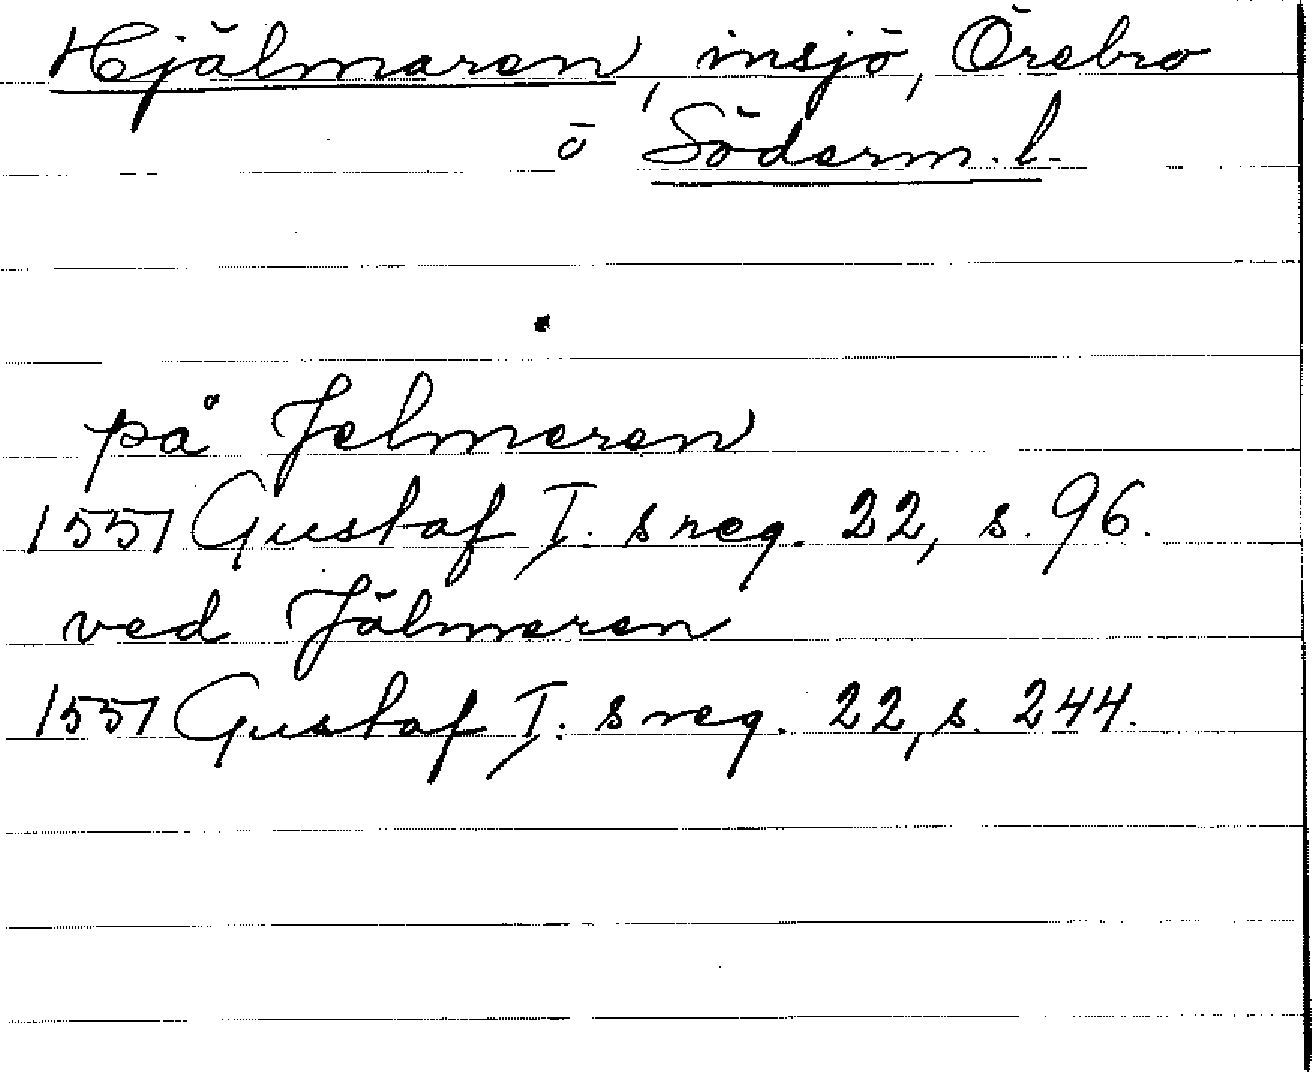 Hjälmaren, insjö, Örebro
o Söderm. l.
på Jelmeren
1551 Gustaf I: s reg. 22, s. 96.
ved Jälmeren
1551 Gustaf I: s reg. 22, s. 244.